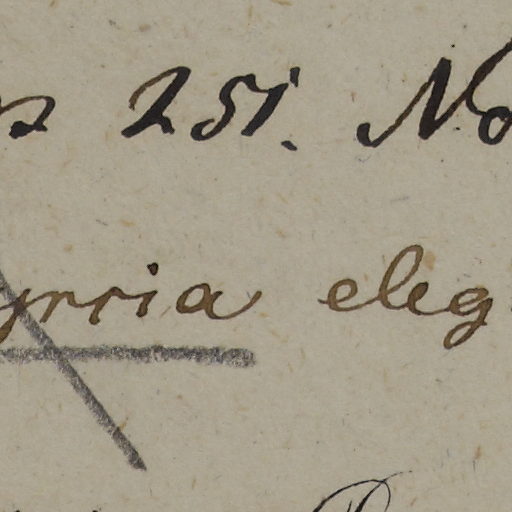 251. No
yrria eleg